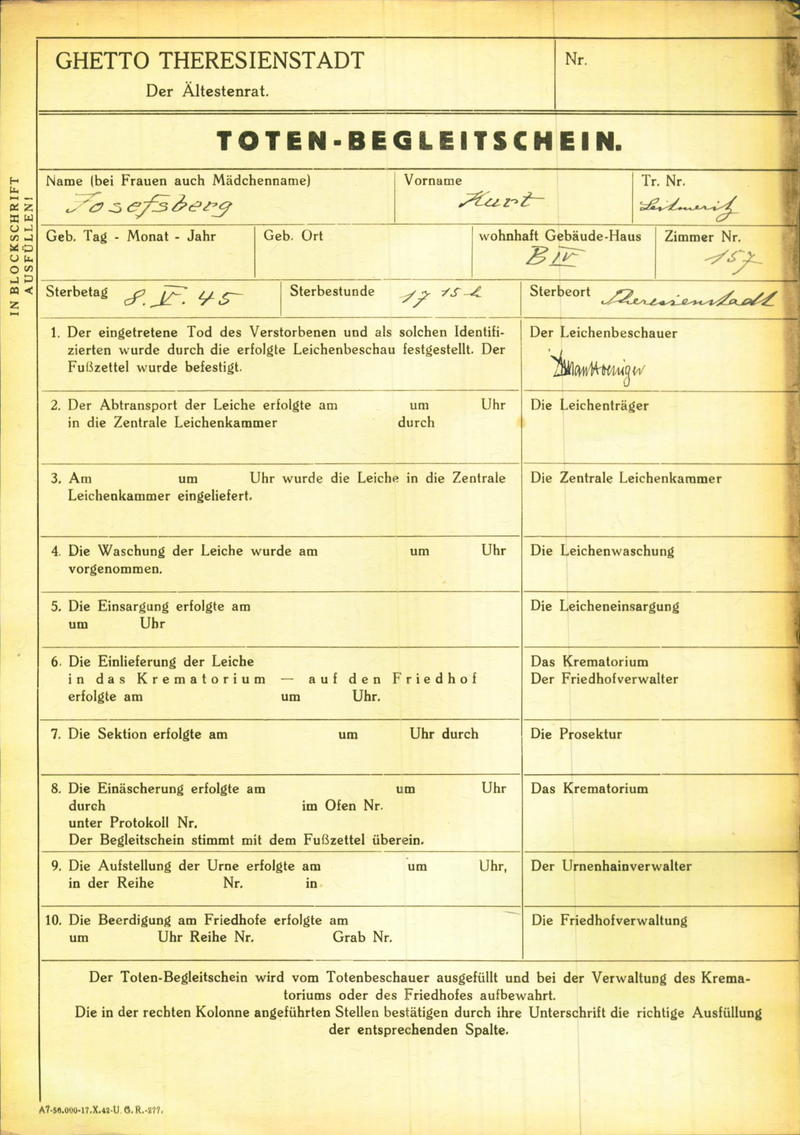 GHETTO THERESIENSTADT
Der Ältestenrat.
Nr.
TOTEN-BEGLEITSCHEIN.
IN BLOCKSCHRIFT
AUSFÜLLEN!
Name (bei Frauen auch Mädchenname)
Josefsberg
Vorname
Kurt
Tr. Nr.
Leitmeritz
Geb. Tag - Monat - Jahr
Geb. Ort
wohnhaft Gebäude-Haus
B IV
Zimmer Nr.
157
Sterbetag 8. V. 45
Sterbestunde 17 15 h
Sterbeort Theresienstadt
1. Der eingetretene Tod des Verstorbenen und als solchen Identifi-
zierten wurde durch die erfolgte Leichenbeschau festgestellt. Der
Fußzettel wurde befestigt.
Der Leichenbeschauer
2. Der Abtransport der Leiche erfolgte am um Uhr
in die Zentrale Leichenkammer durch
Die Leichenträger
3. Am um Uhr wurde die Leiche in die Zentrale
Leichenkammer eingeliefert.
Die Zentrale Leichenkammer
4. Die Waschung der Leiche wurde am um Uhr
vorgenommen.
Die Leichenwaschung
5. Die Einsargung erfolgte am
um Uhr
Die Leicheneinsargung
6. Die Einlieferung der Leiche
in das Krematorium — auf den Friedhof
erfolgte am um Uhr.
Das Krematorium
Der Friedhofverwalter
7. Die Sektion erfolgte am um Uhr durch
Die Prosektur
8. Die Einäscherung erfolgte am um Uhr
durch im Ofen Nr.
unter Protokoll Nr.
Der Begleitschein stimmt mit dem Fußzettel überein.
Das Krematorium
9. Die Aufstellung der Urne erfolgte am um Uhr,
in der Reihe Nr. in
Der Urnenhainverwalter
10. Die Beerdigung am Friedhofe erfolgte am
um Uhr Reihe Nr. Grab Nr.
Die Friedhofverwaltung
Der Toten-Begleitschein wird vom Totenbeschauer ausgefüllt und bei der Verwaltung des Krema-
toriums oder des Friedhofes aufbewahrt.
Die in der rechten Kolonne angeführten Stellen bestätigen durch ihre Unterschrift die richtige Ausfüllung
der entsprechenden Spalte.
A7-50.000-17.X.42-U. G. R.-277.